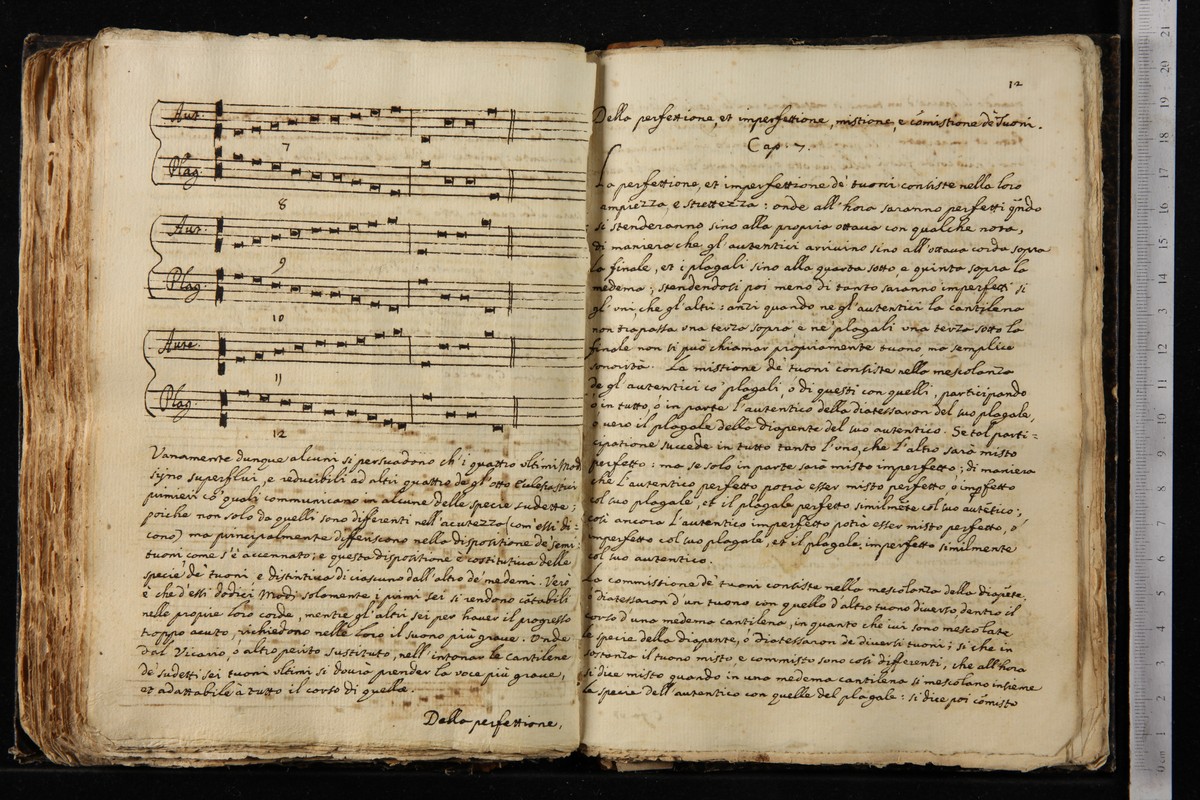 Aut.
7
Plag.
8
Aut.
9
Plag.
10
Aute.
11
Plag.
12
Vanamente dunque alcuni si persuadono ch'i quattro ultimi Modi
sijno superflui, e reducibili ad altri quattro de gl'otto Eclesiastici
primieri co' quali communicano in alcune delle specie sudette;
poiche non solo da quelli sono differenti nell'acutezza (com'essi di=
cono) ma principalmente differiscono nella dispositione de' semi=
tuoni come s'è accennato; e questa dispositione è costitutiva delle
specie de' tuoni, e distintiva di ciascuno dall'altro de' medemi. Vero
è che d'essi dodici Modi solamente i primi sei si rendono cãtabili
nelle proprie loro corde, mentre gl'altri sei per haver il progresso
troppo acuto, richiedono nelle loro il suono più grave. Onde
dal Vicario, ò altro perito sustituto, nell'intonar le Cantilene
de' sudetti sei tuoni ultimi si dovrà prender la voce più grave,
et adattabile a tutto il corso di quelle.
Della perfettione,
12
Della perfettione, et imperfettione, mistione, e cõmistione de' Tuoni.
Cap. 7.
La perfettione, et imperfettione de' tuoni consiste nella loro
ampiezza, e strettezza: onde all'hora saranno perfetti qñdo
si stenderanno sino alla propria ottava con qualche nota,
di maniera che gl'autentici arrivino sino all'ottava corda sopra
la finale, et i plagali sino alla quarta sotto e quinta sopra la
medema; stendendosi poi meno di tanto saranno imperfetti sì
gl'uni che gl'altri: anzi quando ne gl'autentici la cantilena
non trapassa una terza sopra, e ne' plagali una terza sotto la
finale non si può chiamar propriamente tuono, ma semplice
sonorità. La mistione de' tuoni consiste nella mescolanza
de gl'autentici co' plagali, ò di questi con quelli, participando
ò in tutto, ò in parte l'autentico della diatessaron del suo plagale,
o vero il plagale della diapente del suo autentico. Se tal parti=
cipatione succede in tutto tanto l'uno, che l'altro sarà misto
perfetto: ma se solo in parte sarà misto imperfetto; di maniera
che l'autentico perfetto potrà esser misto perfetto, ò imperfetto
col suo plagale, et il plagale perfetto similmẽte col suo autẽtico;
così ancora l'autentico imperfetto potrà esser misto perfetto, ò
imperfetto col suo plagale, et il plagale imperfetto similmente
col suo autentico.
La commistione de' tuoni consiste nella mescolanza della diapẽte,
ò diatessaron d'un tuono con quello d'altro tuono diverso, dentro il
corso d'una medema cantilena, in quanto che ivi sono mescolate
le specie della diapente, ò diatessaron de diversi tuoni; sì che in
sostanza il tuono misto, e commisto sono così differenti, che all'hora
si dice misto quando in una medema cantilena si mescolano insieme
le specie dell'autentico con quelle del plagale: si dice poi cõmisto